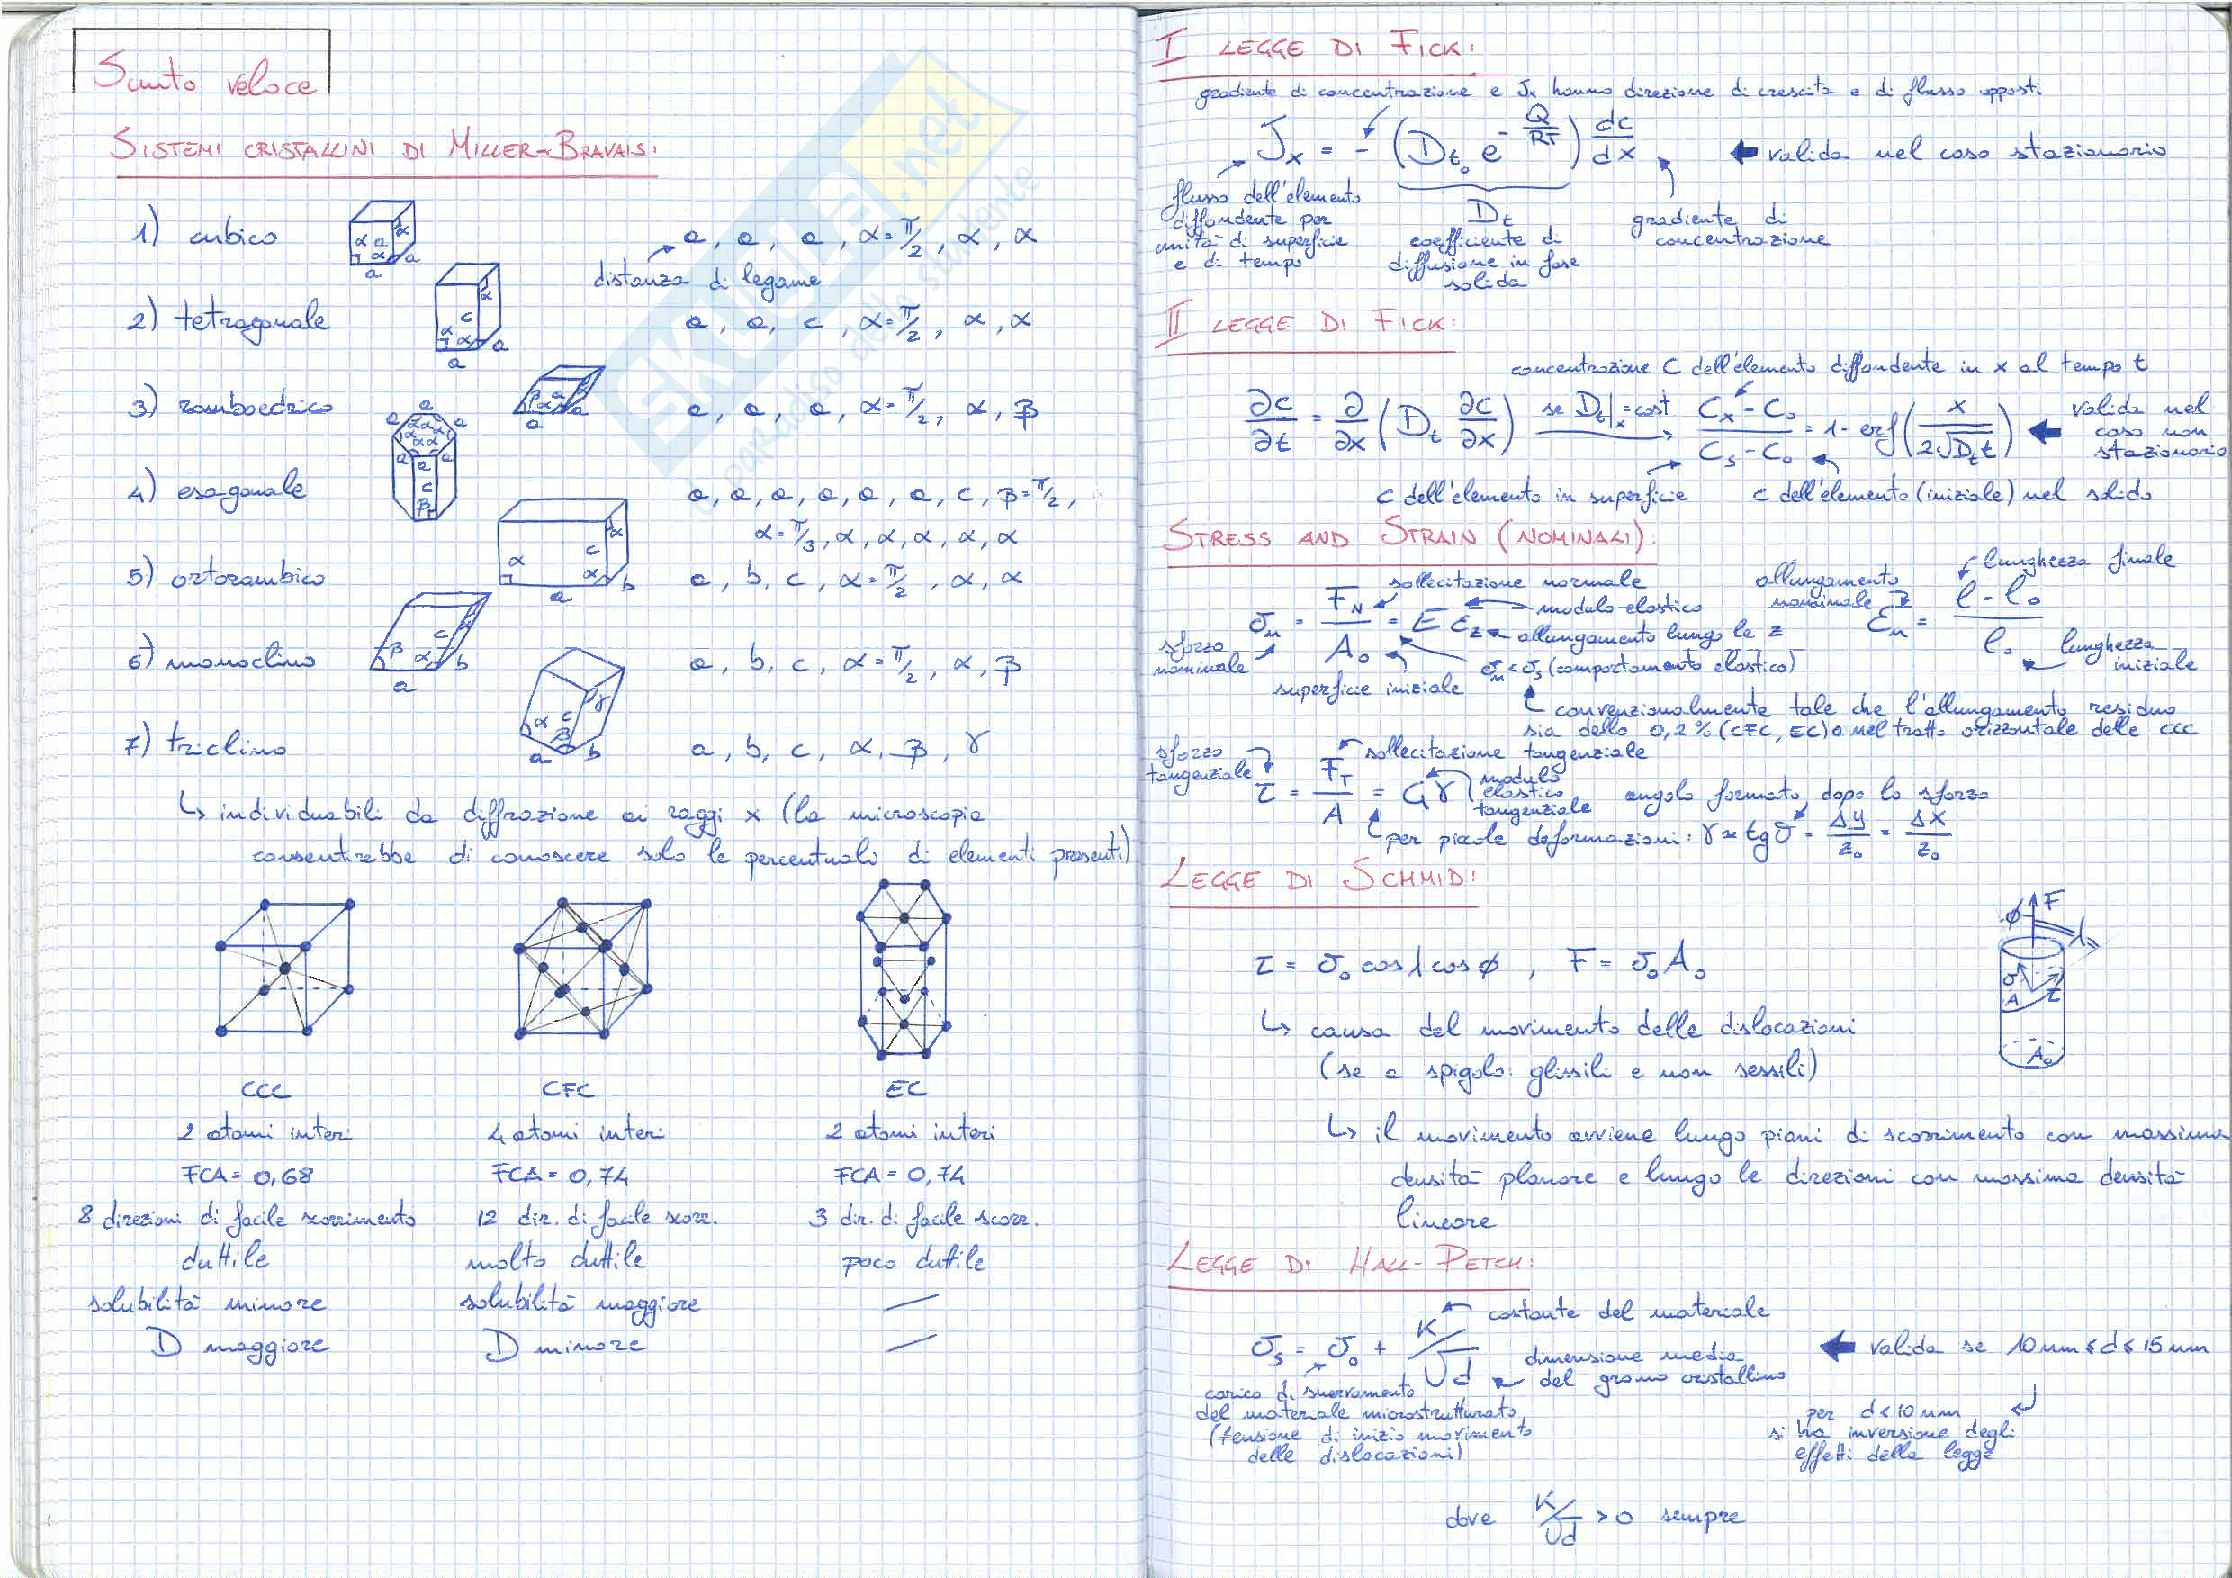 Sunto veloce
SISTEMI CRISTALLINI DI MILLER-BRAVAIS:
1) cubico
a, a, a, α=π/2, α, α
distanza di legame
2) tetragonale
a, a, c, α=π/2, α, α
3) romboedrico
a, a, a, α=π/2, α, β
4) esagonale
a, a, a, a, a, a, c, β=π/2,
α=π/3, α, α, α, α, α
5) ortorombico
a, b, c, α=π/2, α, α
6) monoclino
a, b, c, α=π/2, α, β
7) triclino
a, b, c, α, β, γ
↳ individuabili da diffrazione ai raggi x (la microscopia
consentirebbe di conoscere solo le percentuali di elementi presenti)
CCC CFC EC
2 atomi interi 4 atomi interi 2 atomi interi
FCA= 0,68 FCA= 0,74 FCA= 0,74
8 direzioni di facile scorrimento 12 dir. di facile scorr. 3 dir. di facile scorr.
duttile molto duttile poco duttile
solubilità minore solubilità maggiore —
D maggiore D minore —
I LEGGE DI FICK:
gradiente di concentrazione e Jx hanno direzione di crescita e di flusso opposti
Jx = - (Dt₀ e^(-Q/RT)) dc/dx ← valida nel caso stazionario
flusso dell'elemento
diffondente per
unità di superficie
e di tempo
Dt
coefficiente di
diffusione in fase
solida
gradiente di
concentrazione
II LEGGE DI FICK:
concentrazione C dell'elemento diffondente in x al tempo t
∂c/∂t = ∂/∂x (Dt ∂c/∂x) se Dt|x = cost (Cx - C₀)/(Cs - C₀) = 1 - erf (x/(2√(Dt t))) ← valida nel
caso non
stazionario
C dell'elemento in superficie
C dell'elemento (iniziale) nel solido
STRESS AND STRAIN (NOMINALI):
σn = FN/A₀ = E εz
sollecitazione normale
modulo elastico
allungamento lungo le z
sforzo
nominale
superficie iniziale
σn < σs (comportamento elastico)
convenzionalmente tale che l'allungamento residuo
sia dello 0,2% (CFC, EC) o nel tratto orizzontale delle CCC
allungamento
nominale
εn = (l - l₀)/l₀
lunghezza finale
lunghezza
iniziale
sforzo
tangenziale
τ = FT/A = Gγ
sollecitazione tangenziale
modulo
elastico
tangenziale
angolo formato dopo lo sforzo
per piccole deformazioni: γ ≈ tg ϑ = Δy/z₀ = Δx/z₀
LEGGE DI SCHMID:
τ = σ₀ cos λ cos ϕ , F = σ₀ A₀
↳ causa del movimento delle dislocazioni
(se a spigolo: glissili e non sessili)
↳ il movimento avviene lungo piani di scorrimento con massima
densità planare e lungo le direzioni con massima densità
lineare
ϕ F
λ
σ τ
A
A₀
LEGGE DI HALL-PETCH:
σs = σ₀ + K/√d
costante del materiale
dimensione media
del grano cristallino
← valida se 10 nm ≤ d ≤ 15 μm
carico di snervamento
del materiale microstrutturato
(tensione di inizio movimento
delle dislocazioni)
per d < 10 nm
si ha inversione degli
effetti della legge
dove K/√d > 0 sempre
SKUOLA.net